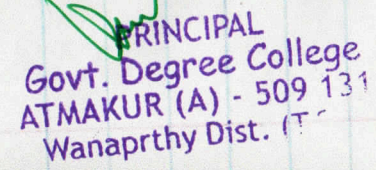 PRINCIPAL
Govt. Degree College
ATMAKUR (A) - 509 131
Wanaprthy Dist. (T